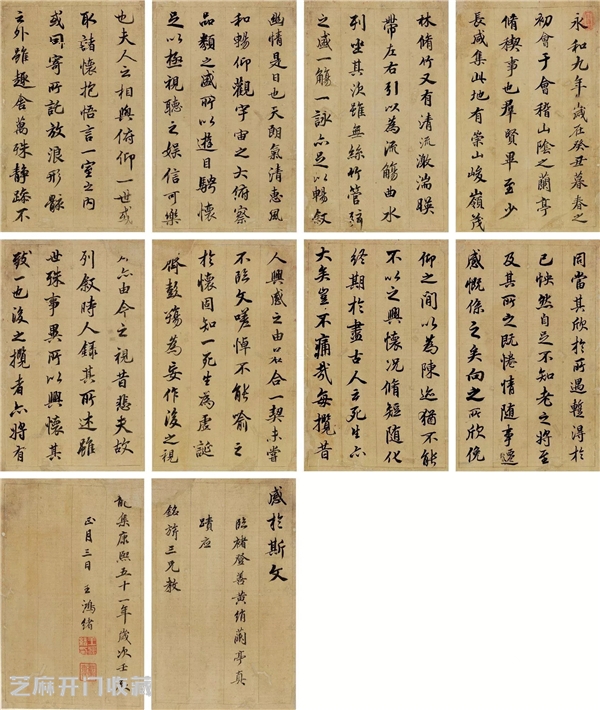 永和九年歲在癸丑暮春之
初會于會稽山陰之蘭亭
脩稧事也群賢畢至少
長咸集此地有崇山峻嶺茂
林脩竹又有清流激湍暎
帶左右引以為流觴曲水
列坐其次雖無絲竹管絃
之盛一觴一詠亦足以暢敘
幽情是日也天朗氣清惠風
和暢仰觀宇宙之大俯察
品類之盛所以遊目騁懷
足以極視聽之娛信可樂
也夫人之相與俯仰一世或
取諸懷抱悟言一室之內
或因寄所託放浪形骸
之外雖趣舍萬殊靜躁不
同當其欣於所遇蹔得於
己怏然自足不知老之將至
及其所之既惓情隨事遷
感慨係之矣向之所欣俛
仰之間以為陳迹猶不能
不以之興懷況脩短隨化
終期於盡古人云死生亦
大矣豈不痛哉每攬昔
人興感之由若合一契未嘗
不臨文嗟悼不能喻之
於懷固知一死生為虛誕
齊彭殤為妄作後之視
今亦由今之視昔悲夫故
列敘時人錄其所述雖
世殊事異所以興懷其
致一也後之攬者亦將有
感於斯文
臨褚登善黃絹蘭亭真
蹟應
銘旂三兄教
龍集康熙五十一年歲次壬辰
正月三日 王鴻緒
芝麻开门收藏